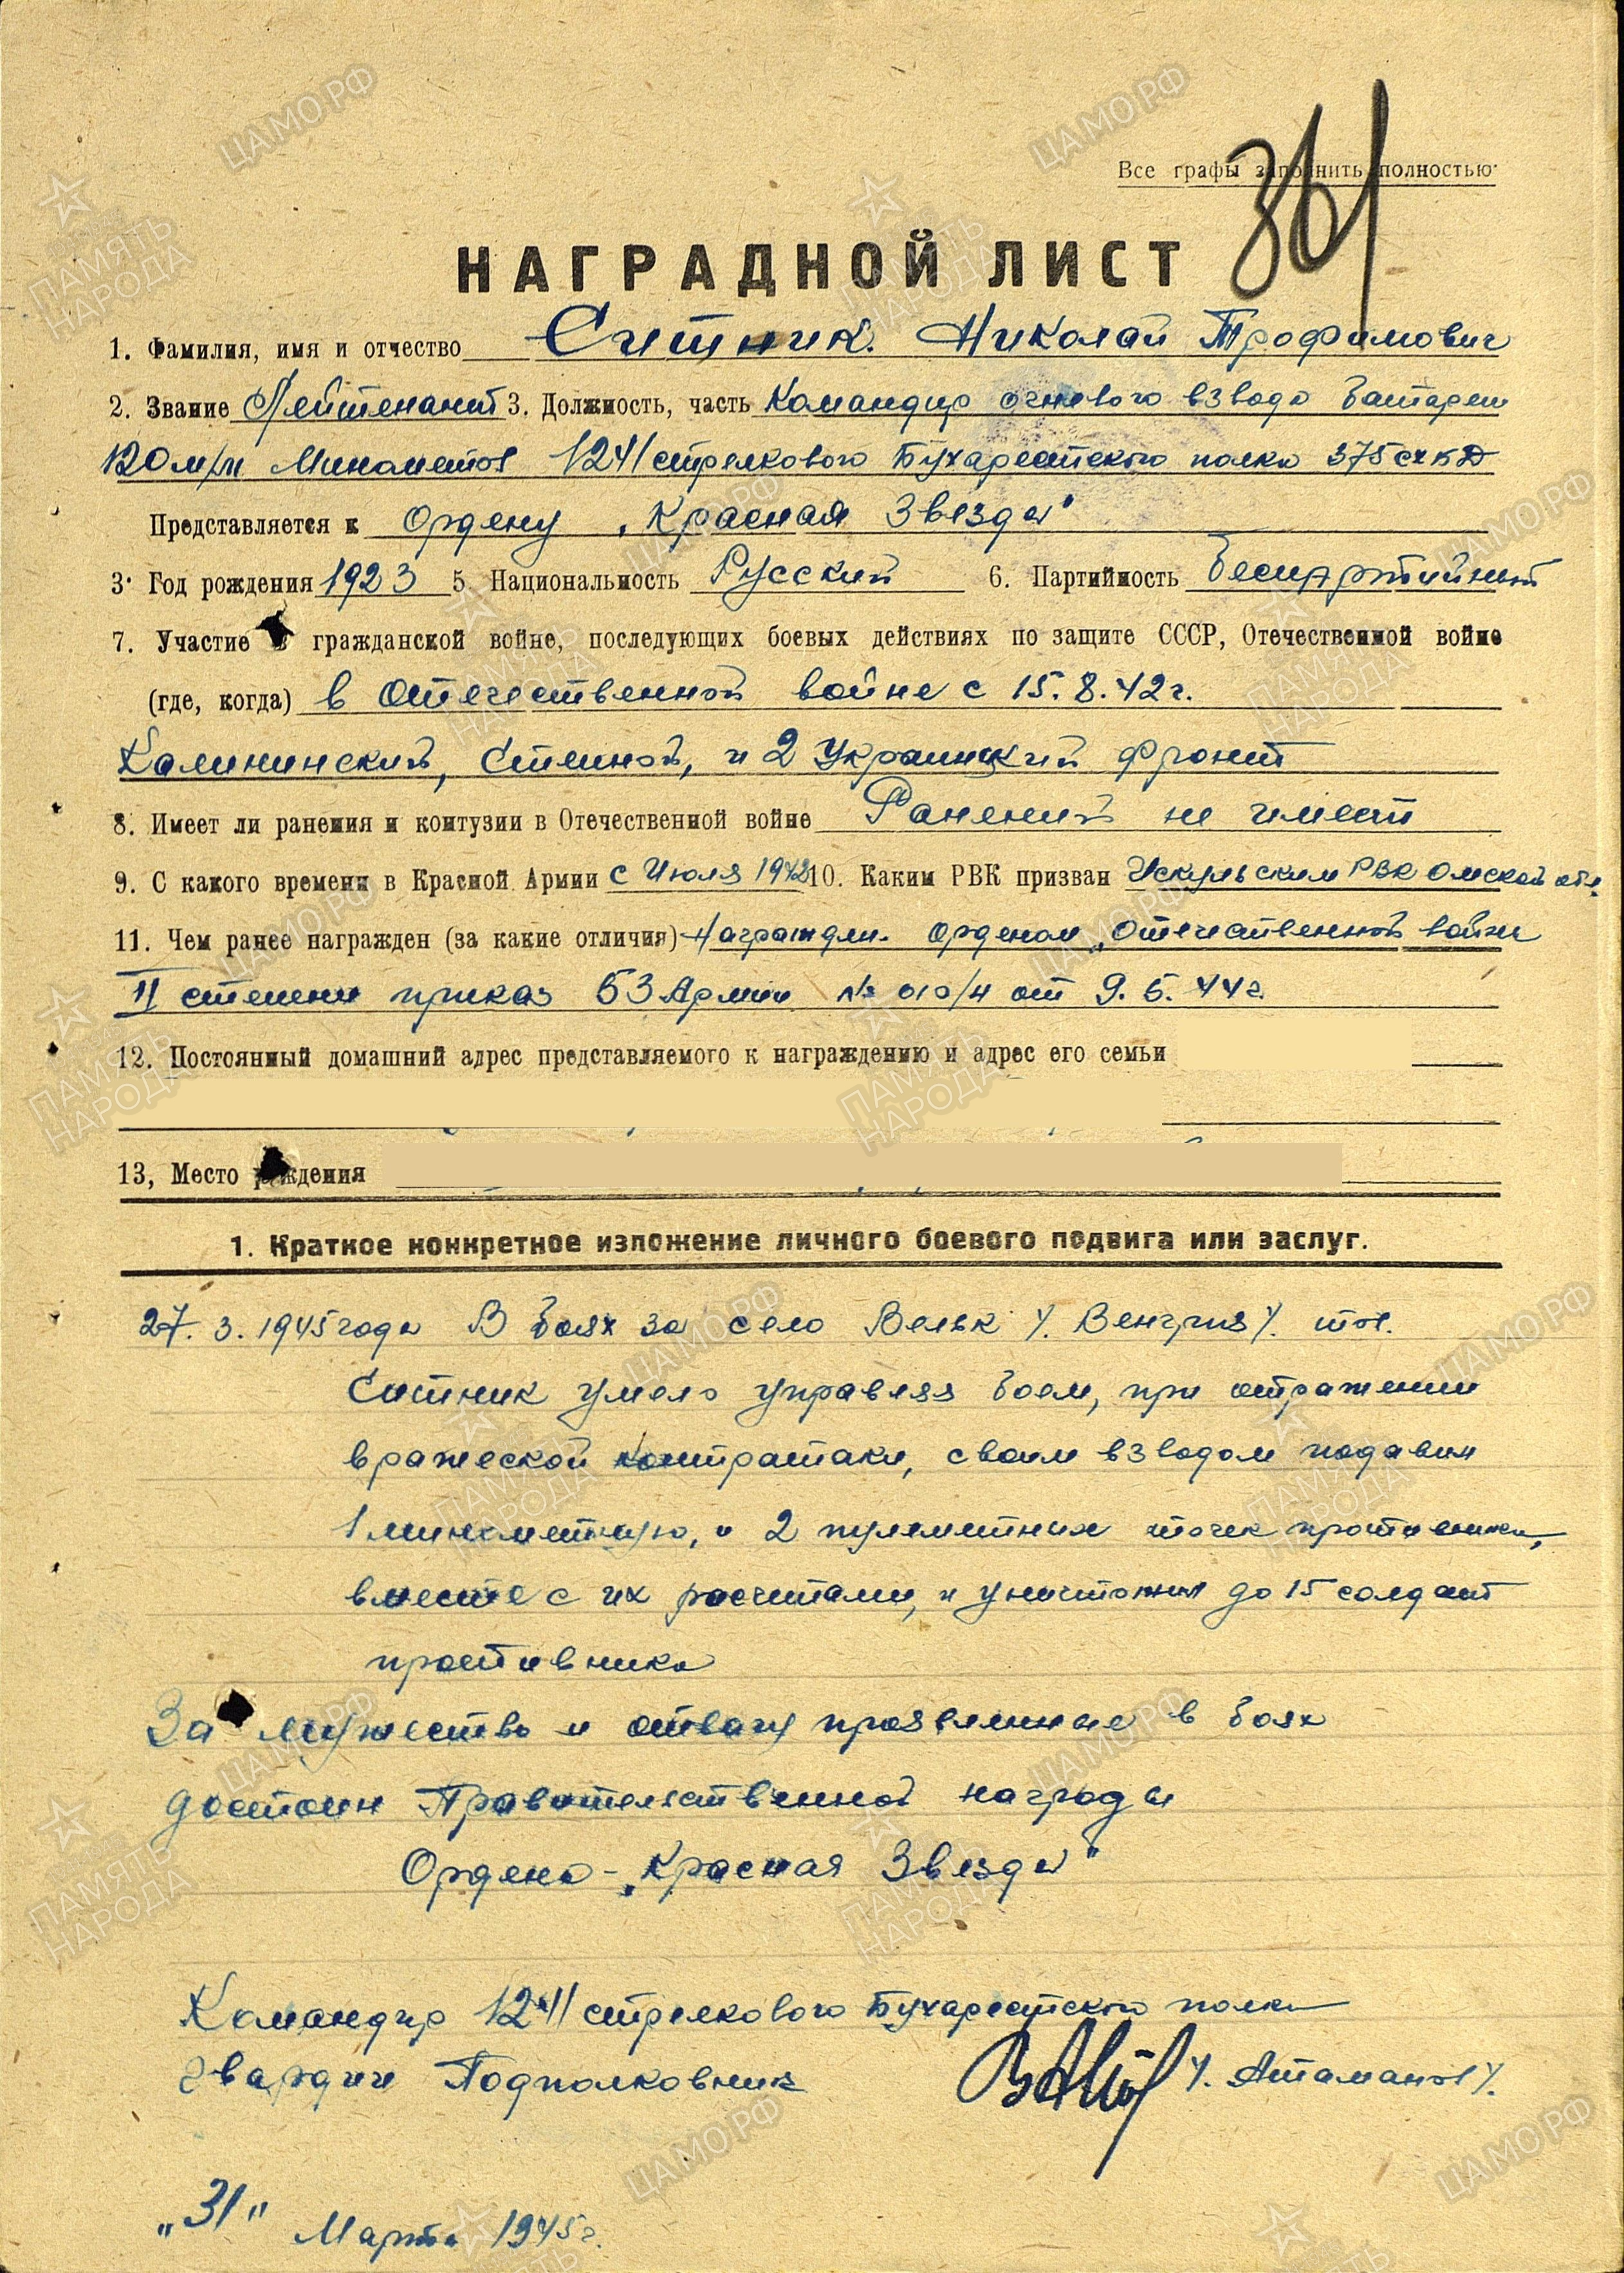 361
Все графы заполнить полностью
НАГРАДНОЙ ЛИСТ
1. Фамилия, имя и отчество Ситник Николай Трофимович
2. Звание Лейтенант 3. Должность, часть Командир огневого взвода батареи
120 м/м Минометов 1241 стрелкового Бухарестского полка 375 сх кд
Представляется к Ордену „Красная Звезда"
3. Год рождения 1923 5. Национальность Русский 6. Партийность беспартийный
7. Участие в гражданской войне, последующих боевых действиях по защите СССР, Отечественной войне
(где, когда) в Отечественной войне с 15.8.42 г.
Калининский, Степной, и 2 Украинский фронт
8. Имеет ли ранения и контузии в Отечественной войне Ранений не имеет
9. С какого времени в Красной Армии с Июля 1942 10. Каким РВК призван РВК Омской обл.
11. Чем ранее награжден (за какие отличия) Награжден. орденом „Отечественной войны
II степени приказ 53 Армии № 010/н от 9.5.44 г.
12. Постоянный домашний адрес представляемого к награждению и адрес его семьи
13, Место рождения
1. Краткое конкретное изложение личного боевого подвига или заслуг.
27.3.1945 года В боях за село Вельк /. Венгрия /. тов.
Ситник умело управляя боем, при отражении
вражеской контратаки, своим взводом подавил
1 минометную, и 2 пулеметных точек противника,
вместе с их расчетами, и уничтожил до 15 солдат
противника
За мужество и отвагу проявленные в боях
достоин Правительственной награды
Ордена - „Красная Звезда"
Командир 1241 стрелкового Бухарестского полка
гвардии Подполковник /. Атаманов /.
„31" Марта 1945 г.
ЦАМО.РФ
ПАМЯТЬ НАРОДА